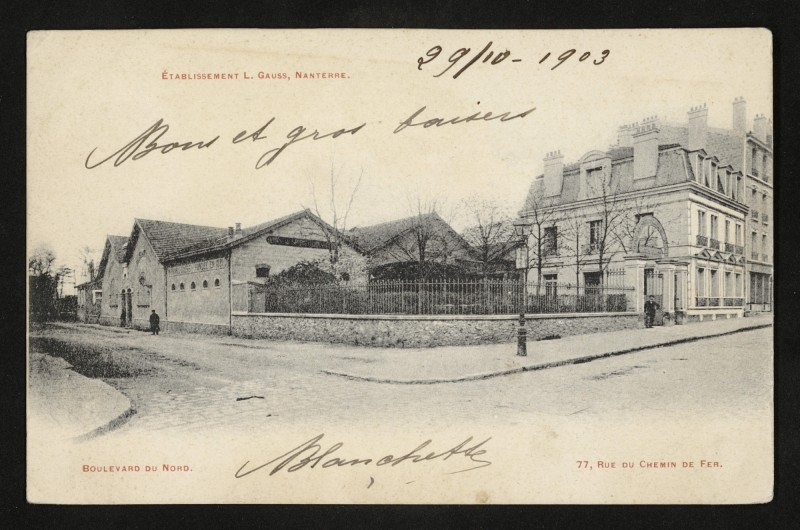 ÉTABLISSEMENT L. GAUSS, NANTERRE.
29/10 - 1903
Bons et gros baisers
BOULEVARD DU NORD.
Blanchette
77, RUE DU CHEMIN DE FER.